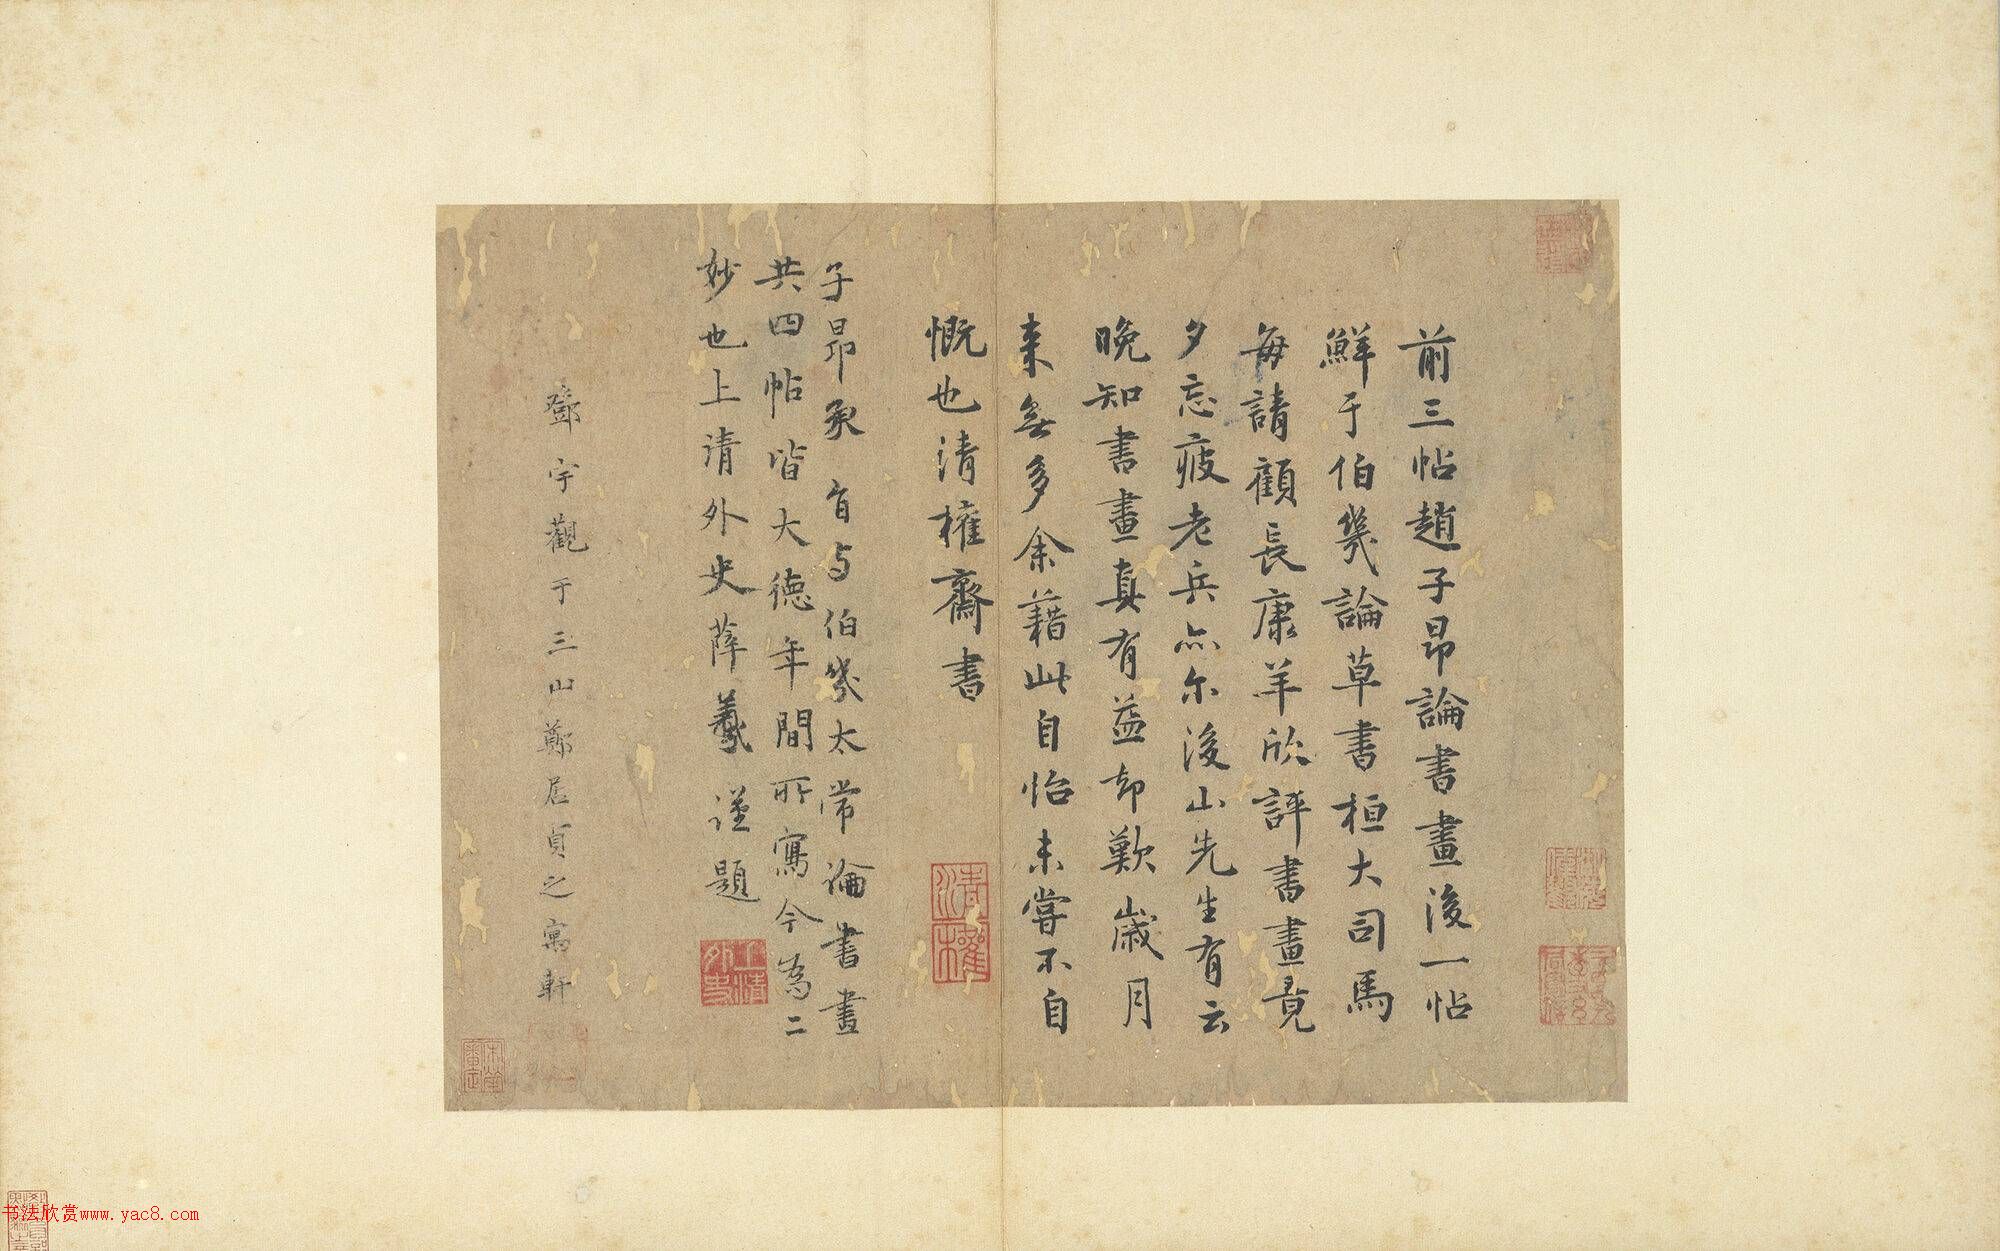 前三帖趙子昂論書畫後一帖
鮮于伯幾論草書桓大司馬
每請顧長康羊欣評書畫竟
夕忘疲老兵亦尓後山先生有云
晚知書畫真有益却歎歲月
來無多余藉此自怡未嘗不自
慨也清權齋書
清權
子昂承旨与伯幾太常論書畫
共四帖皆大德年間所寫今為二
妙也上清外史薛羲謹題
上清外史
鄧宇觀于三山鄭居貞之寓軒
书法欣赏www.yac8.com